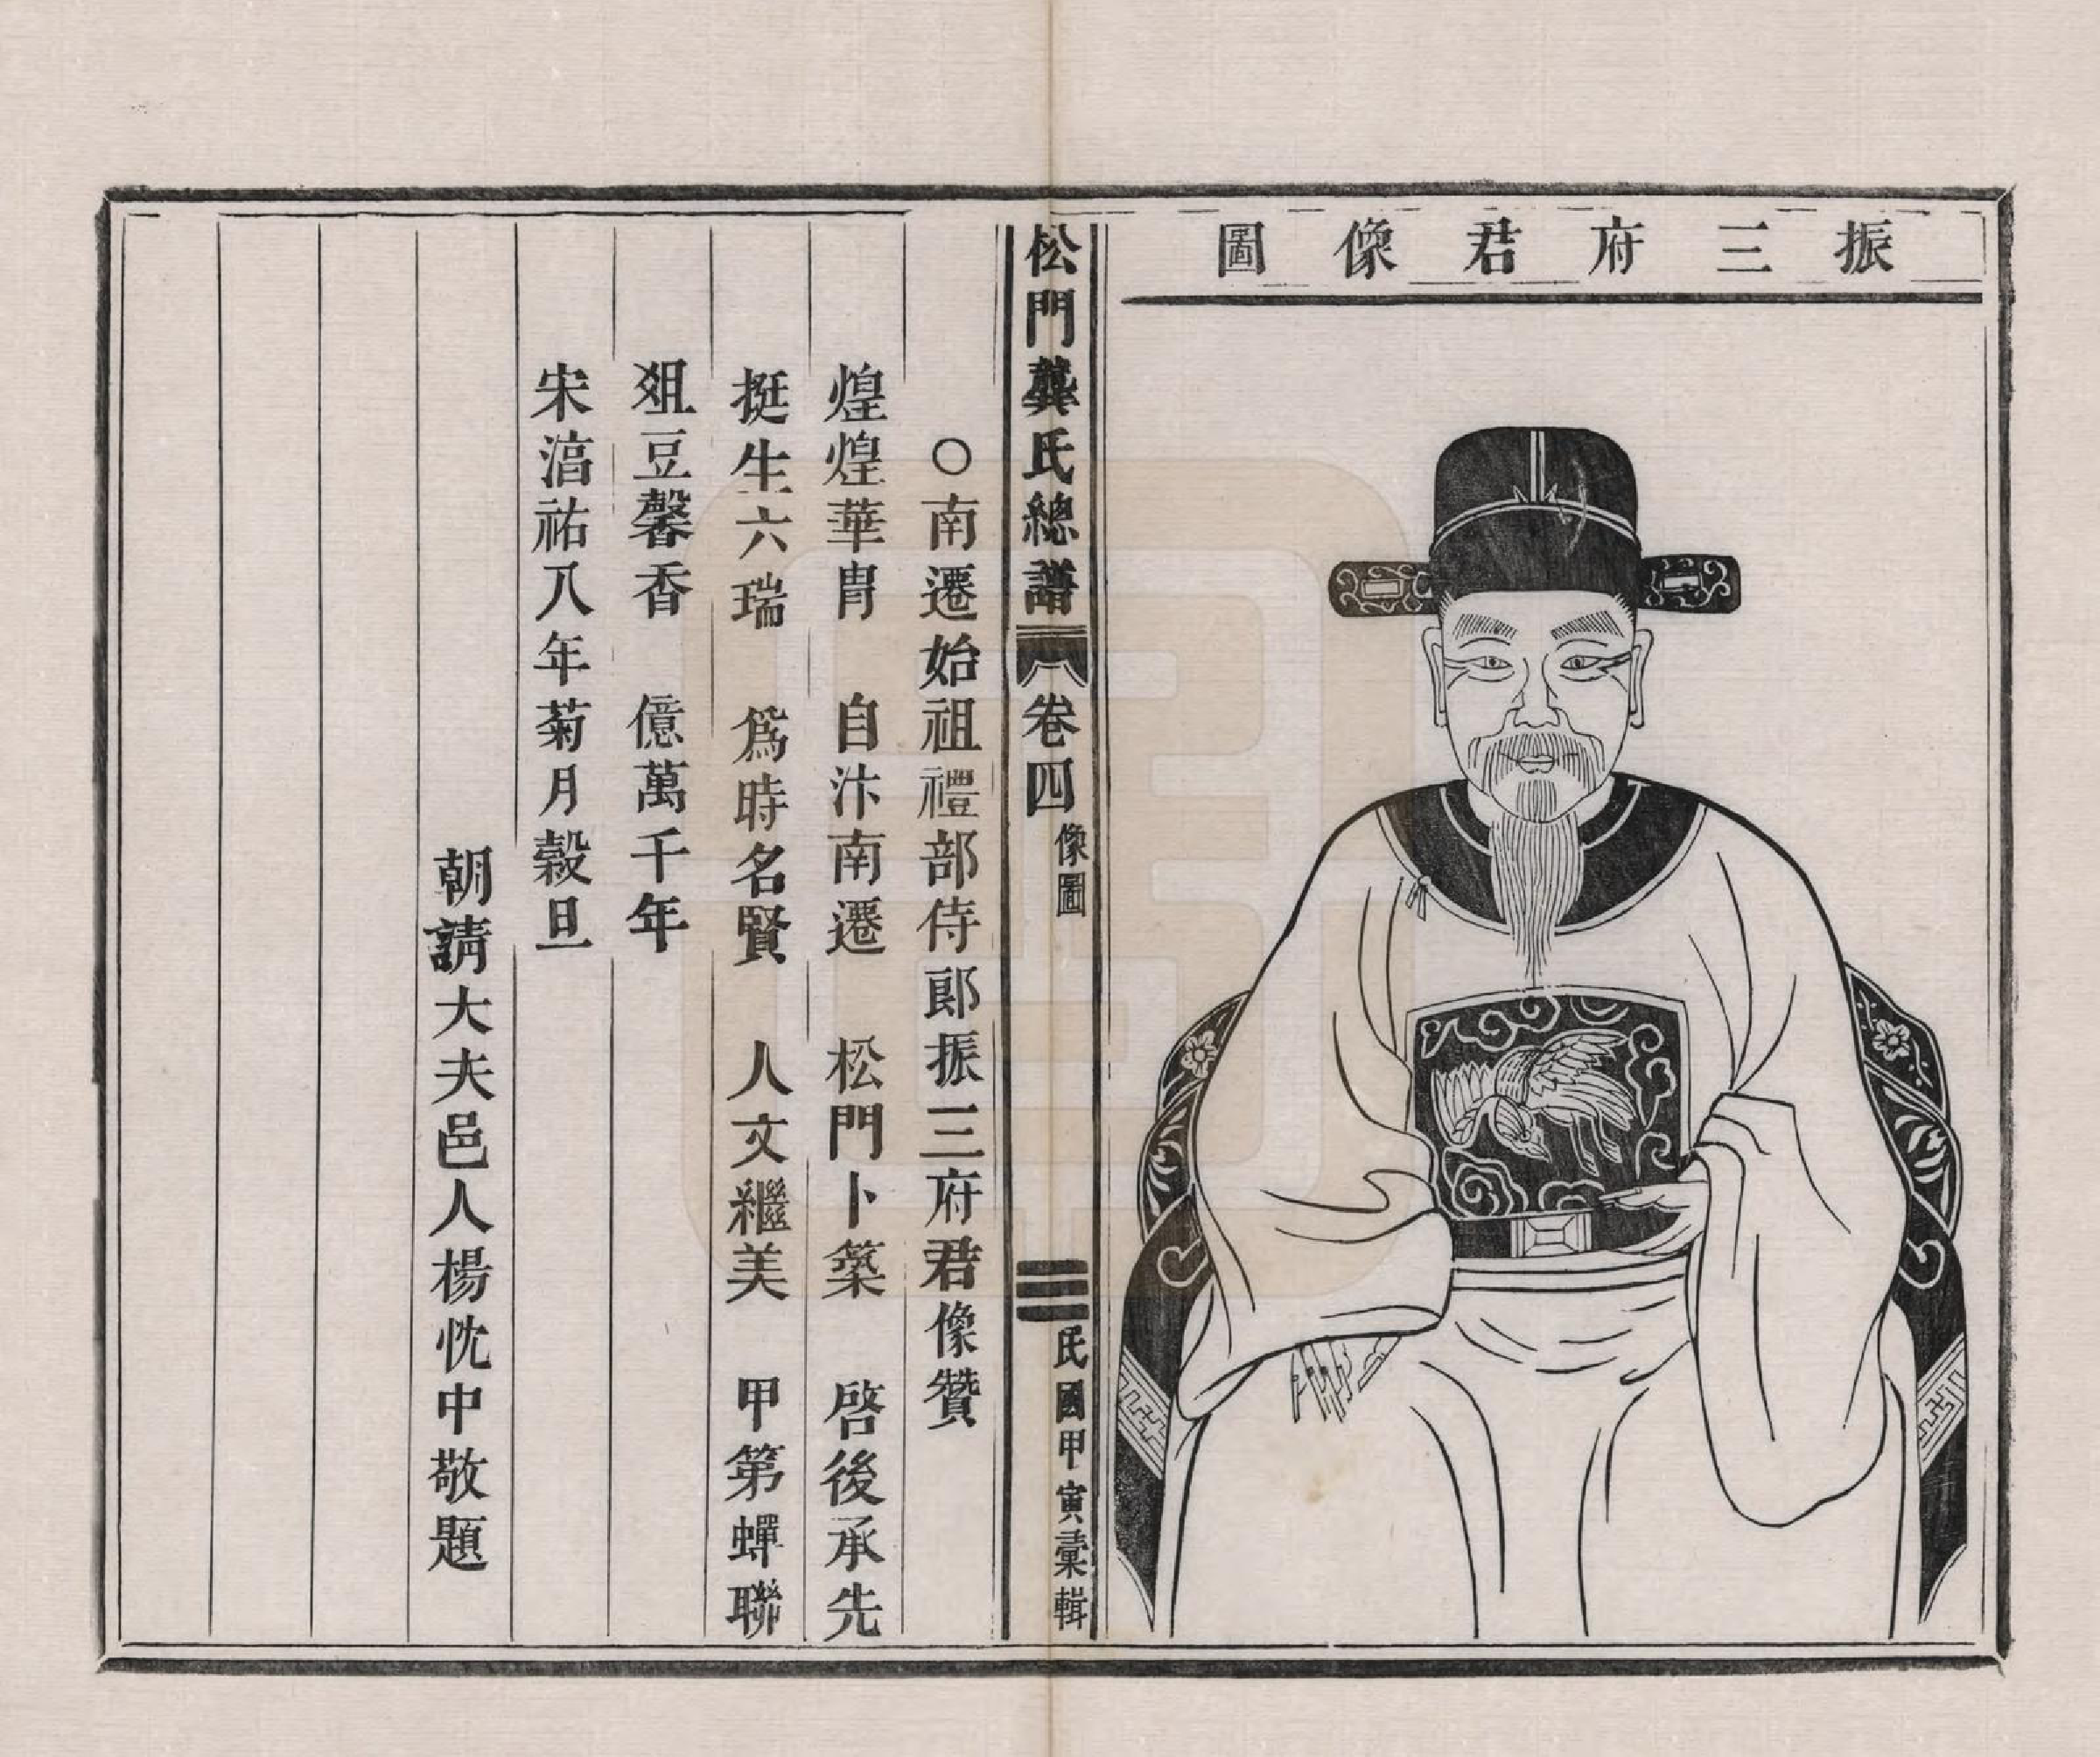 振三府君像圖
松門龔氏總譜 卷四 像圖 三 民國甲寅彙輯
○南遷始祖禮部侍郎振三府君像贊
煌煌華胄 自汴南遷 松門卜築 啓後承先
挺生六瑞 爲時名賢 人文繼美 甲第蟬聯
俎豆馨香 億萬千年
宋湻祐八年菊月穀旦
朝請大夫邑人楊忱中敬題